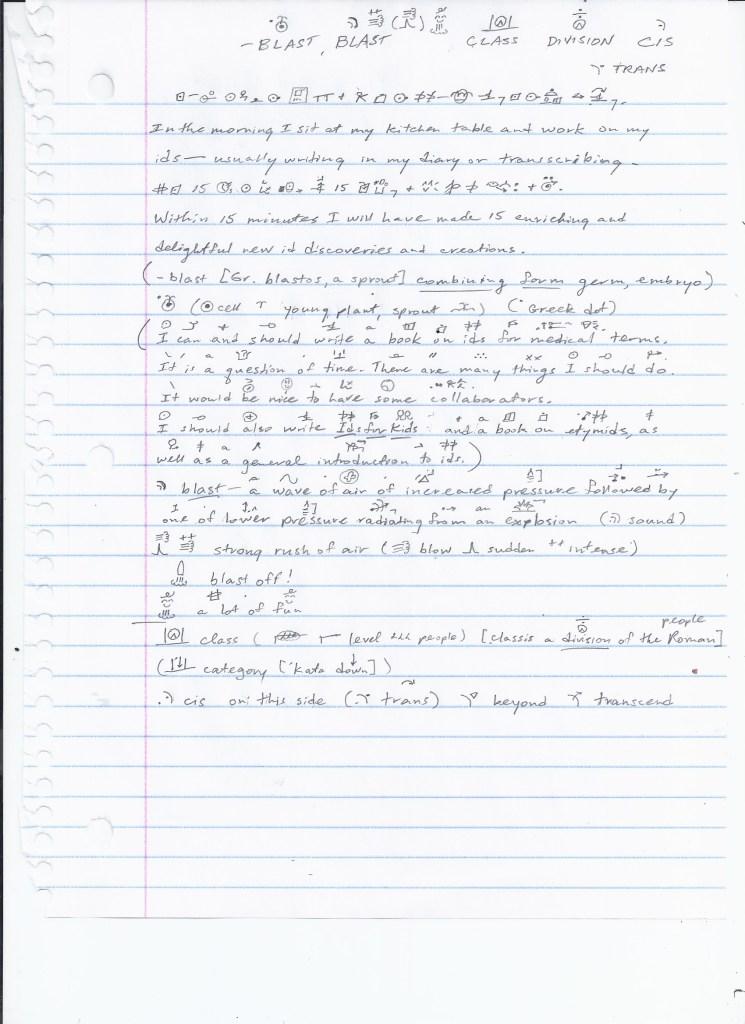 -BLAST, BLAST CLASS DIVISION CIS
TRANS
In the morning I sit at my kitchen table and work on my
ids — usually writing in my diary or transscribing -
15 15
Within 15 minutes I will have made 15 enriching and
delightful new id discoveries and creations.
(-blast [Gr. blastos, a sprout] combining form germ, embryo)
(cell young plant, sprout) (Greek dot)
(I can and should write a book on ids for medical terms.
It is a question of time. There are many things I should do.
It would be nice to have some collaborators.
I should also write Ids for Kids and a book on etymids, as
well as a general introduction to ids.)
blast - a wave of air of increased pressure followed by
one of lower pressure radiating from an explosion (sound)
strong rush of air (blow sudden ++ intense)
blast off!
a lot of fun
people
class (level people) [classis a division of the Roman]
(category ['kata down])
cis on this side (trans) beyond transcend